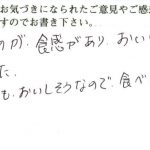 お気づきになられたご意見やご感
すのでお書き下さい。
のが、食感があり、おいし
た。
も、おいしそうなので、食べ